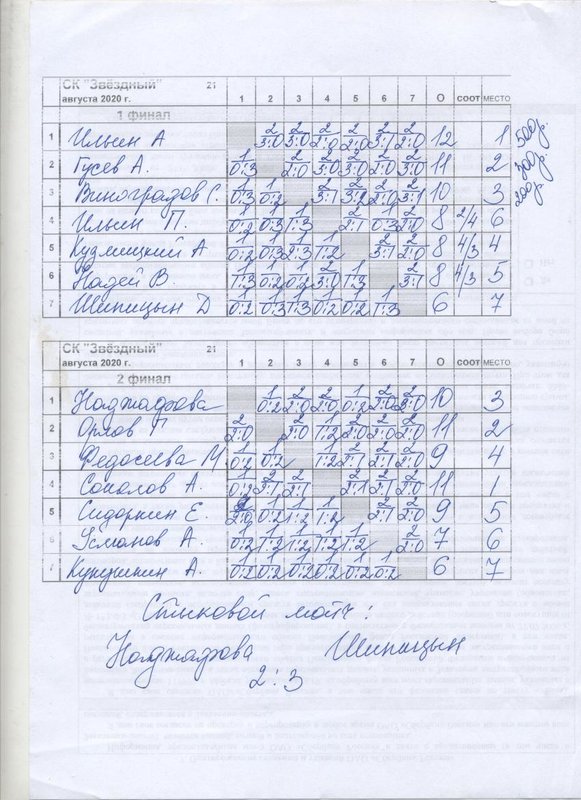 СК "Звёздный" 21
августа 2020 г. 1 2 3 4 5 6 7 О СООТ МЕСТО
1 финал
1 Ильин А 2 3:0 2 3:0 2 2:0 2 2:0 2 3:1 2 2:0 12 1 500р.
2 Гусев А. 1 0:3 2 2:0 2 3:0 2 3:0 2 2:0 2 3:0 11 2 300р.
3 Виноградов С. 1 0:3 1 0:2 2 3:1 2 3:2 2 2:0 2 3:1 10 3 200р.
4 Ильин П. 1 0:2 1 0:3 1 1:3 2 2:1 1 0:3 2 2:0 8 2/4 6
5 Кузмицкий А 1 0:2 1 0:3 1 2:3 1 1:2 2 3:1 2 2:0 8 4/3 4
6 Надей В. 1 1:3 1 0:2 1 0:2 2 3:0 1 1:3 2 3:1 8 4/3 5
7 Шипицын Д 1 0:2 1 0:3 1 1:3 1 0:2 1 0:2 1 1:3 6 7
СК "Звёздный" 21
августа 2020 г. 1 2 3 4 5 6 7 О СООТ МЕСТО
2 финал
1 Наджафова 1 0:2 2 2:0 2 2:0 1 0:2 2 2:0 2 2:0 10 3
2 Орлов Г 2 2:0 2 2:0 1 1:2 2 2:0 2 2:0 2 2:0 11 2
3 Федосеева М. 1 0:2 1 0:2 1 1:2 2 2:1 2 2:1 2 2:0 9 4
4 Соколов А. 1 0:2 2 2:1 2 2:1 2 2:1 2 2:1 2 2:0 11 1
5 Сидоркин Е. 2 2:0 1 0:2 1 1:2 1 1:2 2 2:1 2 2:0 9 5
6 Усманов А. 1 0:2 1 1:2 1 1:2 1 1:2 1 1:2 2 2:0 7 6
7 Кукушкин А. 1 0:2 1 0:2 1 0:2 1 0:2 1 0:2 1 0:2 6 7
Стыковой матч:
Наджафова Шипицын
2:3